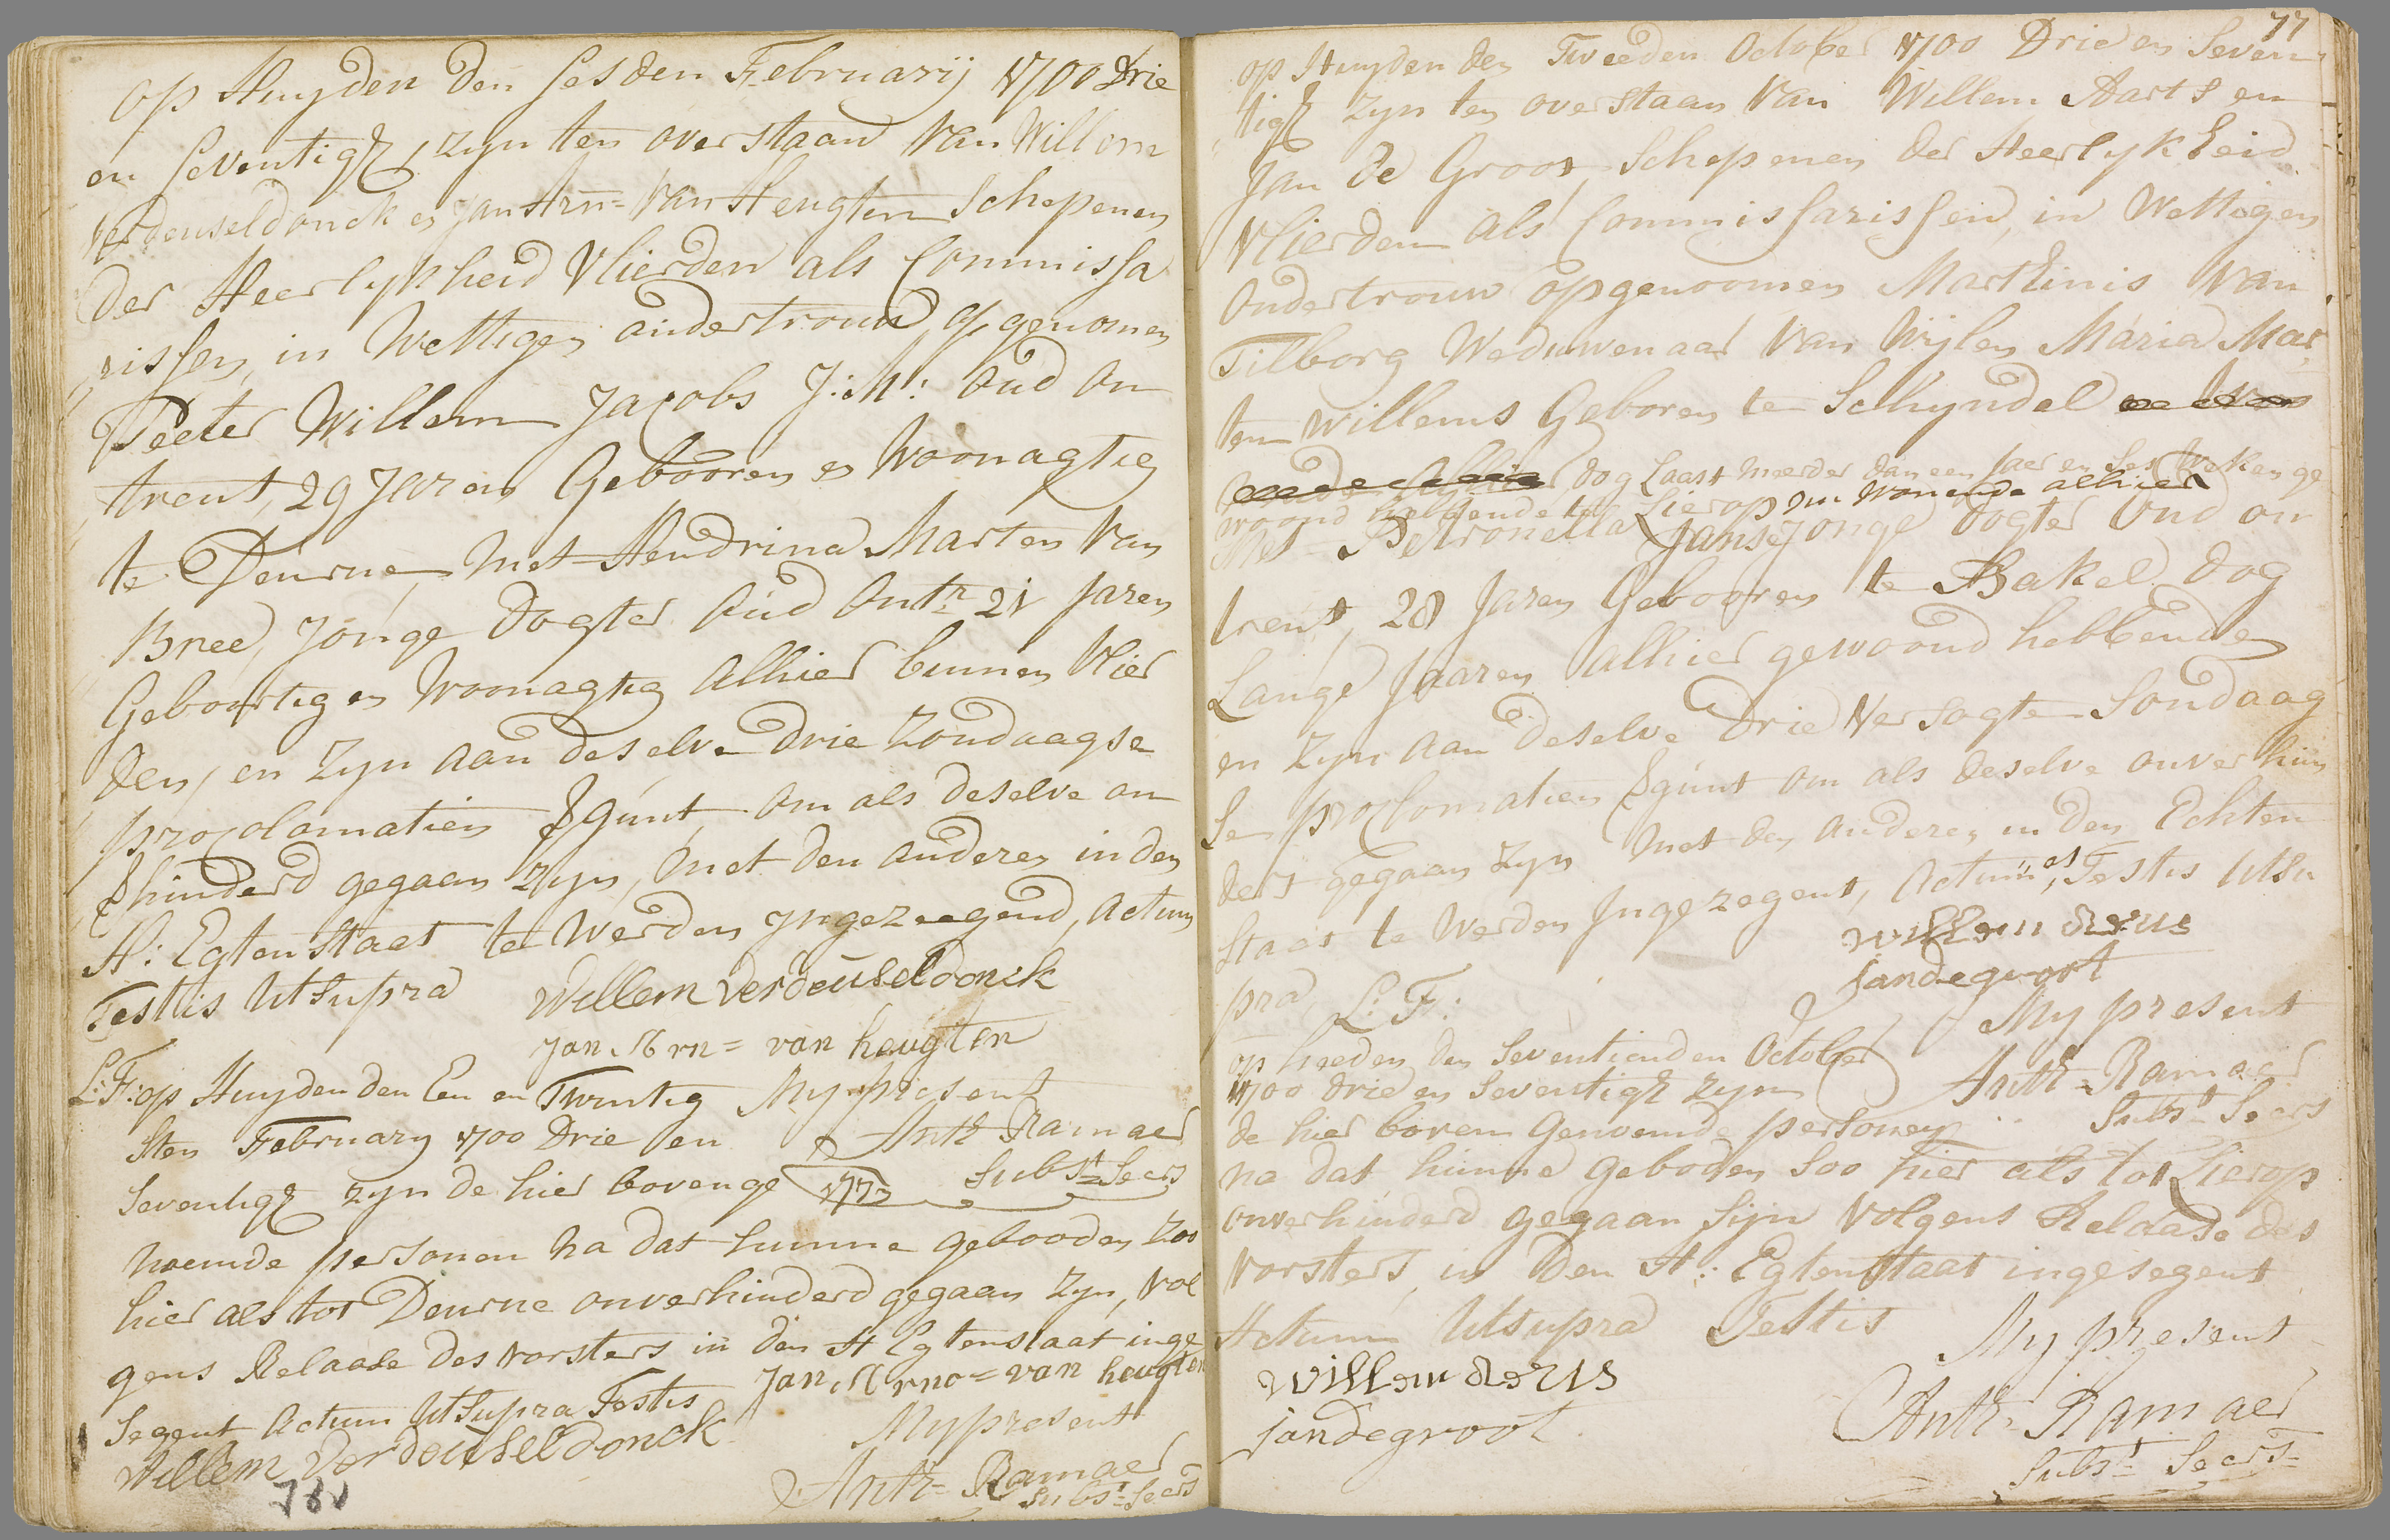 op Huyden den sesden Februarij 1700 Drie
en seventigh, zyn ten overstaan van Willem
verdeuseldonck en Jan Arn= van Heugten Schepenen
der Heerlykheid Vlierden als Commissa
rissen, in Wettigen ondertrouw opgenomen
Peeter Willem Jacobs J:M: oud om
trent, 29 Jaren Gebooren en Woonagtig
te Deurne, met Hendrina Marten van
Bree, Jonge Dogter oud ontr= 21 Jaren
Geboortig en Woonagtig Alhier binnen Vlier
den, en Zyn aan deselve drie Zondaagse
proclamatien gunt, om als deselve on
hinderd gegaan Zyn, met den anderen in den
H: Egten Staet te werden Ingezeegend, Actum
Testis Utsupra Willem verdeuseldonck
Jan Arn= van heugten
L:F: op Huyden den Een en Twintig My present
sten February 1700 Drie en Anth= Ramaer
Seventigh zyn de hier bovenge 1773 Subst= Secrs
noemde personen na dat hunne gebooden zoo
hier als tot Deurne onverhinderd gegaan Zyn, Vol
gens Relaase des vorsters in den H Egtenstaat inge
segent Actum Utsupra Testis Jan Arno= van heugten
Willem Verdeuseldonck My present
Anth= Ramaer
Subst= Secrs
77
op Huyden den Tweeden October 1700 Drie en Seven
tigh zyn ten overstaan van Willem Aarts en
Jan de Groot, Schepenen der Heerlykheid
Vlierden als Commissarissen, in Wettigen
Ondertrouw opgenoomen Marthinis van
Tilborg Weduwenaar van Wylen Maria Mar
ten Willems Geboren te Schyndel
dog laast meerder dan een Jaer en ses Weken ge
woond hebbende tot Lierop nu wonende alhier
Met Petronella Janse Jonge dogter Oud om
trent, 28 Jaren Gebooren te Bakel dog
Lange Jaaren Alhier gewoond hebbende
en Zyn aan deselve Drie versogte Sondaag
se proclomatien gunt om als deselve onverhin
dert gegaan zyn met den anderen in den Echten
Staat te Werden Ingezegent, Actum, et Testis Utsu
pra willem
L:F: jandegroot
op heeden den Seventienden October My present
1700 drie en Seventigh zyn Anth= Ramaer
de hier boven Genoemde personen Subst= Secrs
na dat hunne Geboden soo hier als tot Lierop
onverhinderd gegaan sijn Volgens Relaase des
Vorsters, in den H: Egtenstaat ingesegent
Actum Utsupra Testis My present
willem
jandegroot
Anth= Ramaer
Subst= Secrs=